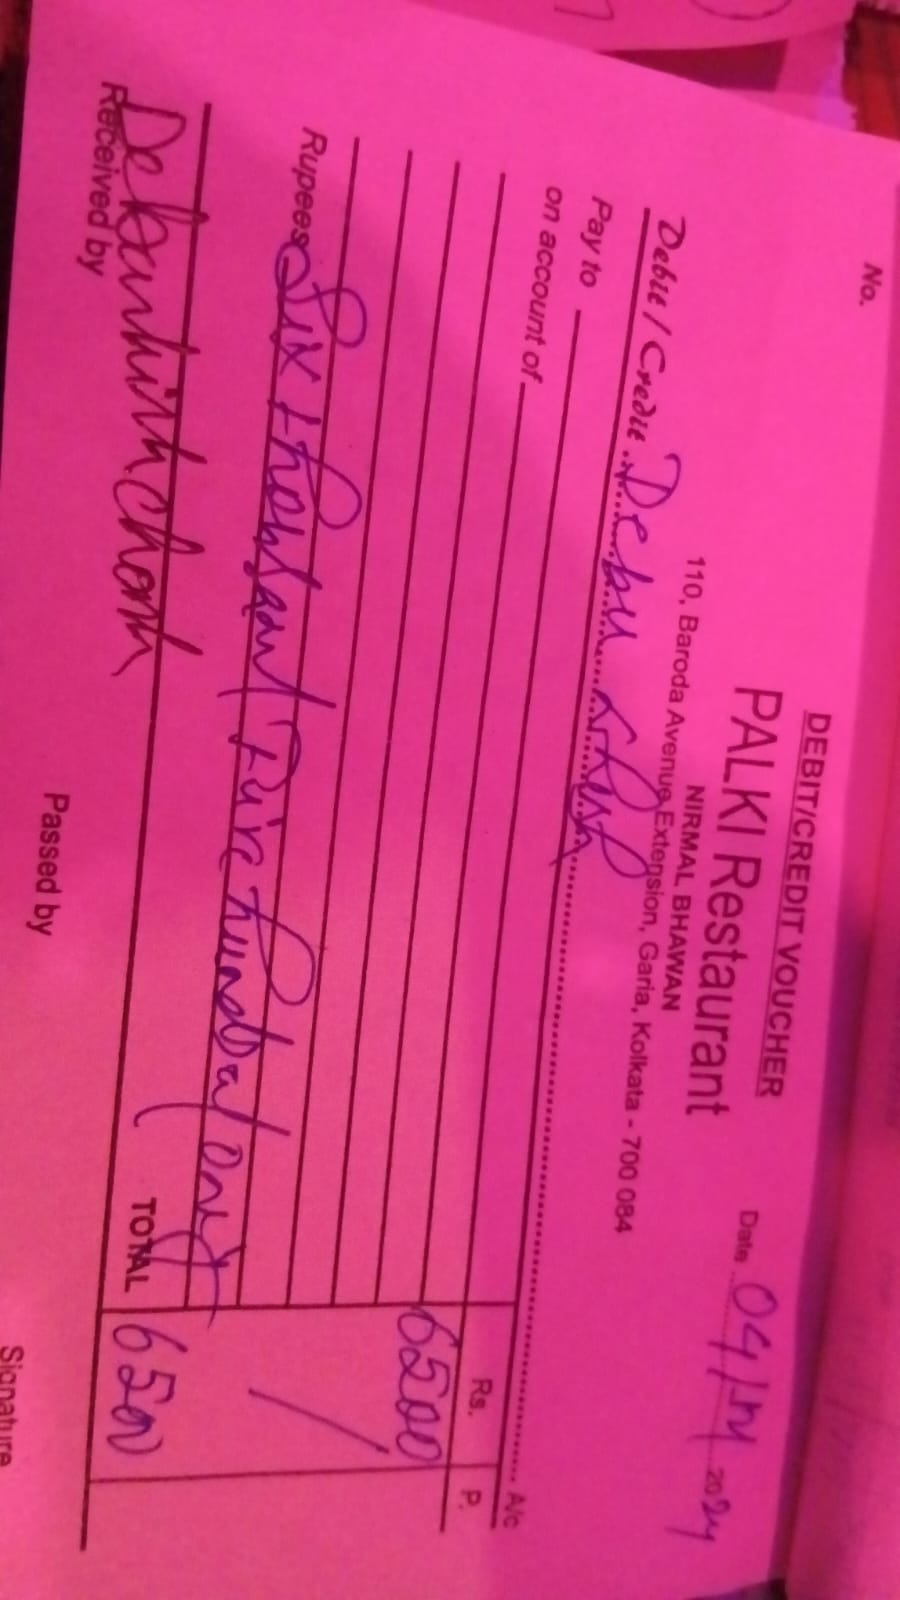 No.
DEBIT/CREDIT VOUCHER
PALKI Restaurant
NIRMAL BHAWAN
110, Baroda Avenue Extension, Garia, Kolkata - 700 084
Date 04/ 2024
Debit / Credit Debu A/c
Pay to
on account of
Rs. P.
6500
Rupees Six thousand Five hundred only
TOTAL 6500
Received by
Passed by
Signature